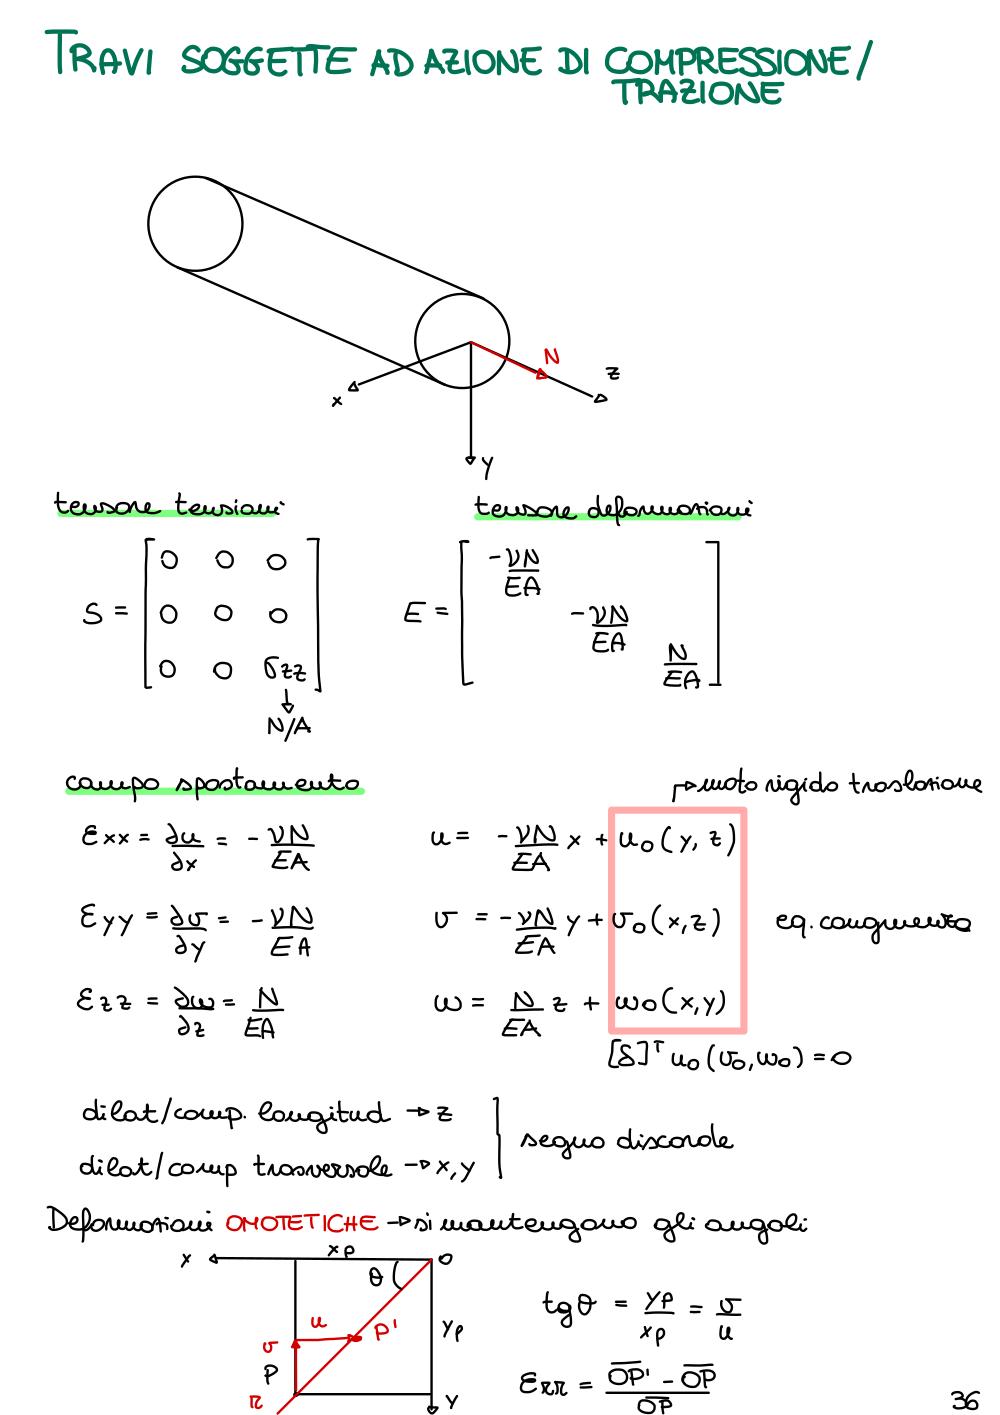 TRAVI SOGGETTE AD AZIONE DI COMPRESSIONE/
TRAZIONE
N
z
x
y
tensore tensioni
tensore deformazioni
S = [ 0 0 0
0 0 0
0 0 σzz ]
↓
N/A
E = [ -νN/EA
-νN/EA
N/EA ]
campo spostamento
→ moto rigido traslazione
εxx = ∂u/∂x = - νN/EA
u = - νN/EA x + u₀(y, z)
εyy = ∂v/∂y = - νN/EA
v = - νN/EA y + v₀(x,z)
eq. congruenza
εzz = ∂w/∂z = N/EA
w = N/EA z + w₀(x,y)
[δ]ᵀ u₀(v₀,w₀) = 0
dilat/comp. longitud → z
dilat/comp trasversale → x,y
segno discorde
Deformazioni OMOTETICHE → si mantengono gli angoli
x
xp
O
θ
u
P'
yp
v
P
r
y
tgθ = yp/xp = v/u
εrr = (OP' - OP)/OP
36